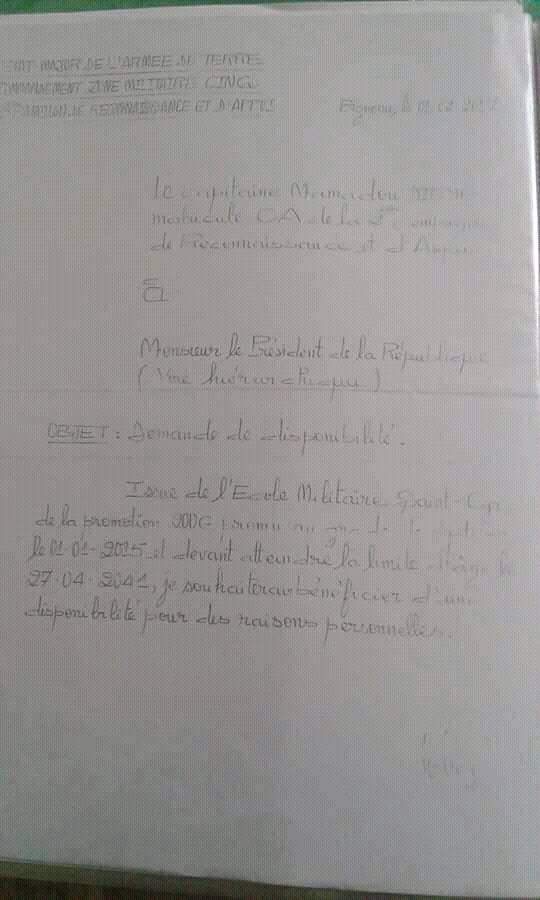 ETAT MAJOR DE L'ARMEE DE TERRE
COMMANDEMENT ZONE MILITAIRE CINQ
DE RECONNAISSANCE ET D'APPUI
Bignona, le
Le capitaine Mamadou
matricule CA de la 5ème
de Reconnaissance et d'Appui
à
Monsieur le Président de la République
(Voie hiérarchique)
OBJET : Demande de disponibilité.
Issue de l'Ecole Militaire Saint-Cyr
de la promotion promu au grade de
le 01-01-2015 et devant atteindre la limite d'âge le
27-04-2041, je souhaiterais bénéficier d'une
disponibilité pour des raisons personnelles.